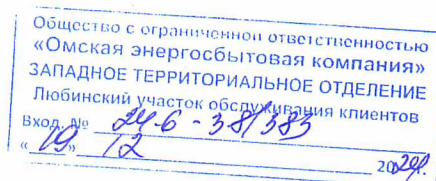 Общество с ограниченной ответственностью
«Омская энергосбытовая компания»
ЗАПАДНОЕ ТЕРРИТОРИАЛЬНОЕ ОТДЕЛЕНИЕ
Любинский участок обслуживания клиентов
Вход. № 24-6-38/383
«19» 12 2024г.